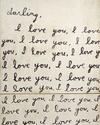 darling,
I love you, I love
you, I love you, I love
you, I love you, I love
you, I love you, I love
you, I love you, I love
I love you, I love you,
I love you, I love you, I
love you, I love you, I love